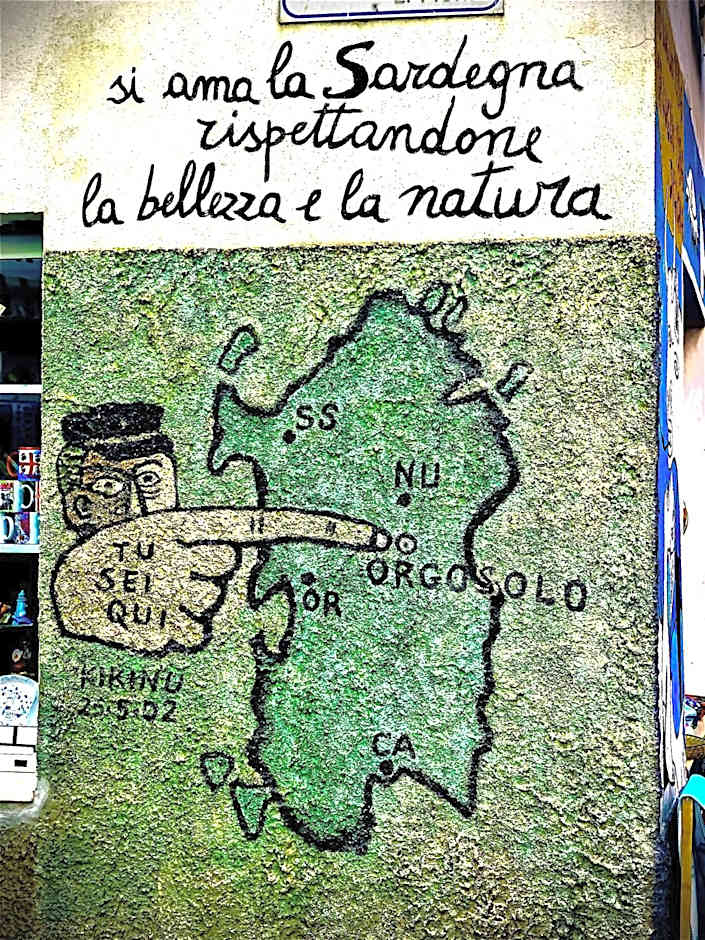 si ama la Sardegna
rispettandone
la bellezza e la natura
SS
NU
TU
SEI
QUI
ORGOSOLO
OR
KIKINU
CA